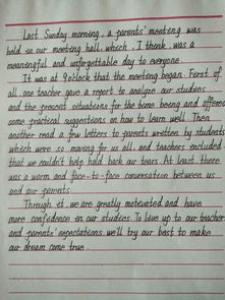 Last Sunday morning, a parents' meeting was
held in our meeting hall, which, I think, was a
meaningful and unforgettable day to everyone.
It was at 9 o'clock that the meeting began. First of
all, one teacher gave a report to analyse our studies
and the present situations for the home being and offered
some practical suggestions on how to learn well. Then
another read a few letters to parents written by students
which were so moving for us all and teachers included
that we couldn't help hold back our tears. At least there
was a warm and face-to-face conversation between us
and our parents.
Through it we are greatly motivated and have
more confidence in our studies. To live up to our teacher
and parents' expectations, we'll try our best to make
our dream come true.